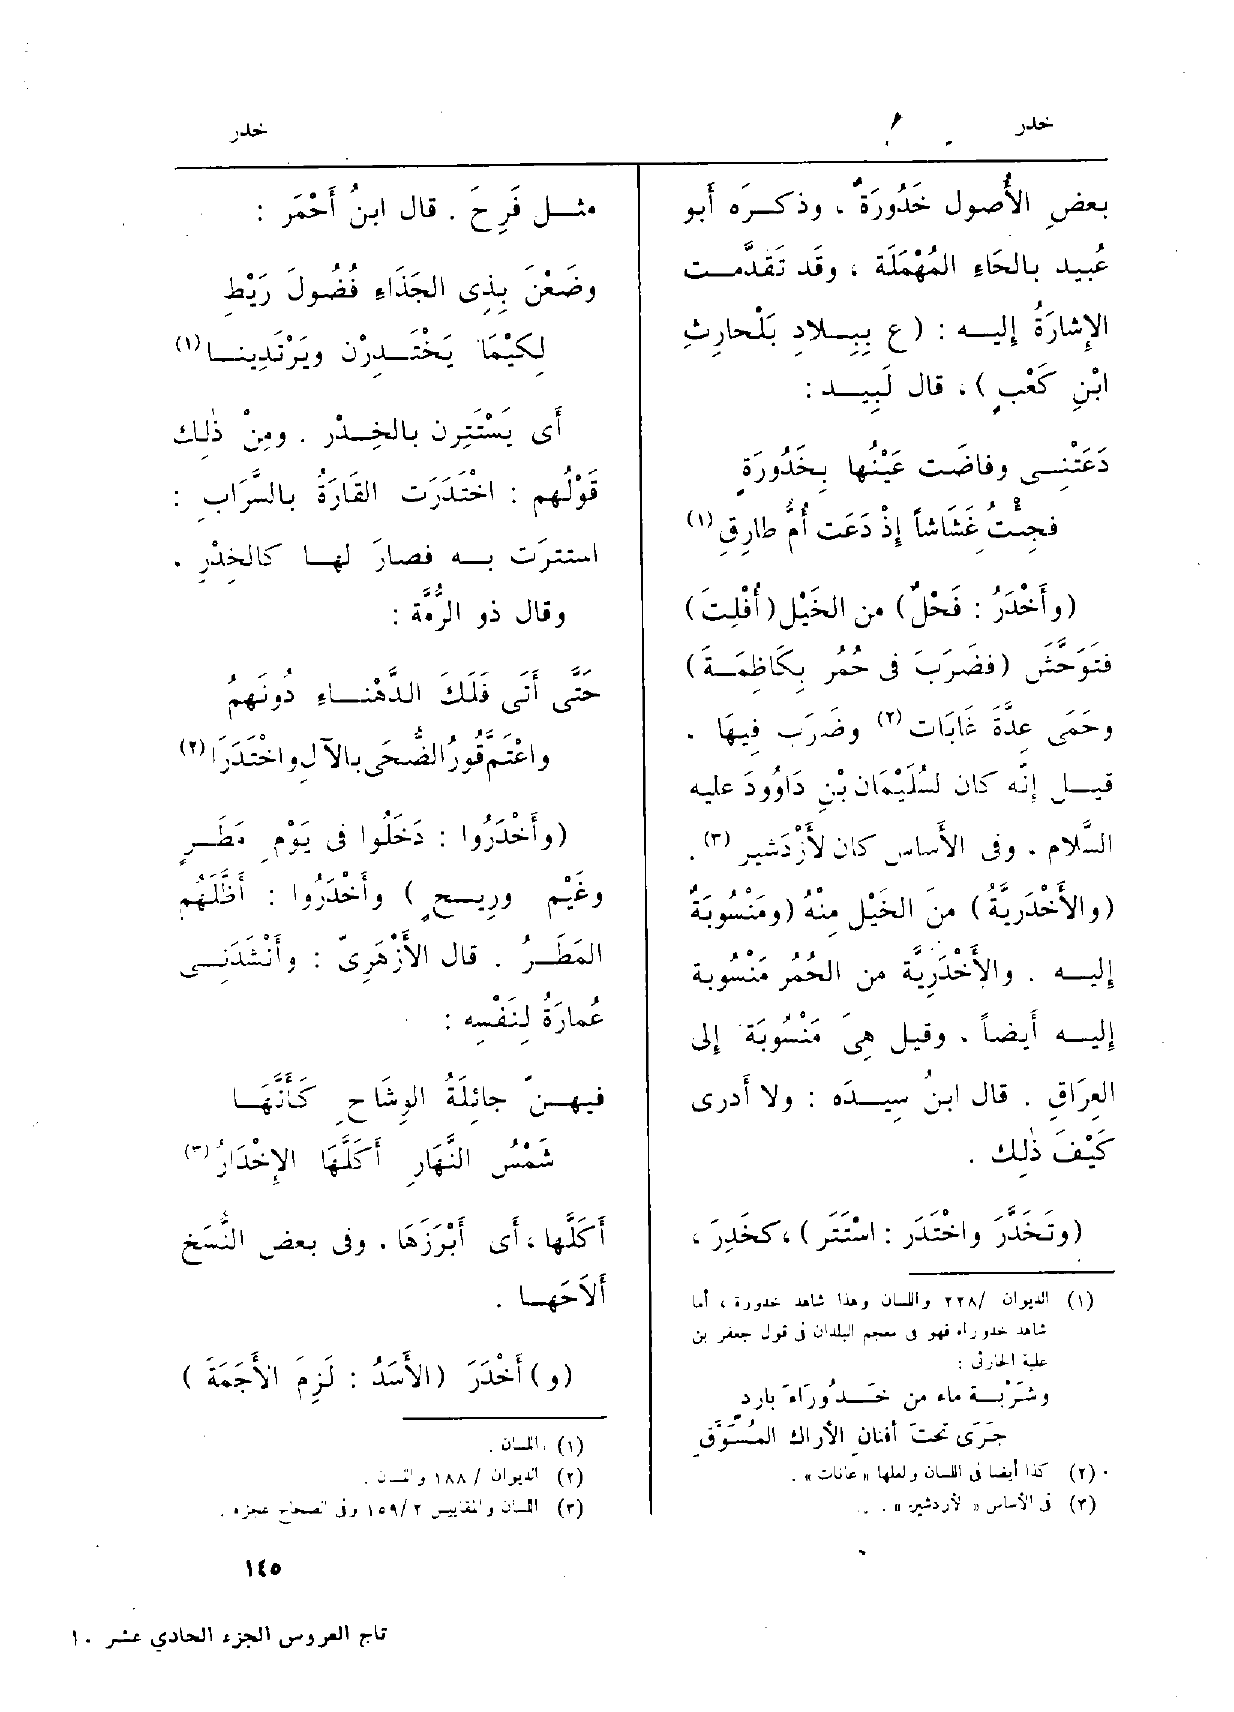 خدر
بعضِ الأُصول خَدُورَةٌ ، وذكــرَه أَبو
عُبيد بالحَاءِ المُهْمَلَة ، وقَد تَقدَّمــت
الإِشارَةُ إِليــه : ( ع بِبِــلادِ بَلْحارِثِ
ابْنِ كَعْبٍ ) ، قال لَبِيــد :
دَعَتْنِــى وفاضَت عَيْنُها بِخَدُورَةٍ
فجِئْتُ غِشَاشاً إِذْ دَعَت أُمُّ طارِقِ (١)
(وأَخْدَرُ : فَحْلٌ) من الخَيْل (أُفْلِتَ)
فتَوَحَّش (فضَرَبَ فى حُمُر بِكَاظِمَــةَ)
وحَمَى عِدَّةَ غَابَات (٢) وضَرَب فِيهَا .
قيــل إِنَّه كان لسُلَيْمَان بْنِ دَاوُودَ عليه
السَّلام . وفى الأَساس كان لأَزْدَشير (٣) .
(والأَخْدَرِيَّةُ) مِنَ الخَيْل مِنْهُ (ومَنْسُوبَةٌ
إِليــه . والأَخْدَرِيَّة من الحُمُر مَنْسُوبة
إِليــه أَيضاً . وقيل هِىَ مَنْسُوبَة إِلى
العِرَاقِ . قال ابنُ سِيــدَه : ولا أَدرى
كَيْفَ ذٰلِك .
(وتَخَدَّرَ واخْتَدَر : اسْتَتَر ) ، كخَدِرَ ،
(١) الديوان /٢٢٨ واللسان وهذا شاهد خدورة ، أما
شاهد خدوراء فهو فى معجم البلدان فى قول جعفر بن
علبة الحارثى :
وشَرْبــة ماء من خَــدُورَاءَ بارد
جَرَى تحتَ أفنانِ الأراك المُسَوَّقِ
(٢) كذا أيضا فى اللسان ولعلها « عانات » .
(٣) فى الأساس « لأردشير » .
خدر
مثــل فَرِحَ . قال ابنُ أَحْمَر :
وضَعْنَ بِذِى الجَذَاءِ فُضُولَ رَيْطٍ
لِكَيْمَا يَخْتَــدِرْن ويَرْتَدِينــا (١)
أَى يَسْتَتِرن بالخِــدْر . ومِنْ ذٰلِك
قَوْلُهم : اخْتَدَرَت القَارَةُ بالسَّرَابِ :
استترَت بــه فصارَ لهــا كالخِدْرِ .
وقال ذو الرُّمَّة :
حَتَّى أَتَى فَلَكَ الدَّهْنــاءِ دُونَهمُ
واعْتَمَّ قُورُ الضُّحَى بالآلِ واخْتَدَرَا (٢)
(وأَخْدَرُوا : دَخَلُوا فى يَوْمِ مَطَــرٍ
وغَيْم ورِيــحٍ ) وأَخْدَرُوا : أَظَلَّهم
المَطَــرُ . قال الأَزْهَرِىّ : وأَنْشَدَنِــى
عُمارَةُ لِنَفْسِه :
فيهــنّ جائِلَةُ الوِشَاحِ كَأَنَّهَــا
شَمْسُ النَّهَارِ أَكَلَّهَا الإِخْدَارُ (٣)
أَكَلَّها ، أَى أَبْرَزَهَا . وفى بعض النُّسَخ
أَلاَحَهــا .
(و) أَخْدَرَ (الأَسَدُ : لَزِمَ الأَجَمَةَ )
(١) اللســان .
(٢) الديوان / ١٨٨ واللســان .
(٣) اللســان والمقاييس ٢ /١٥٩ وفى الصحاح عجزه .
١٤٥
تاج العروس الجزء الحادي عشر ١٠